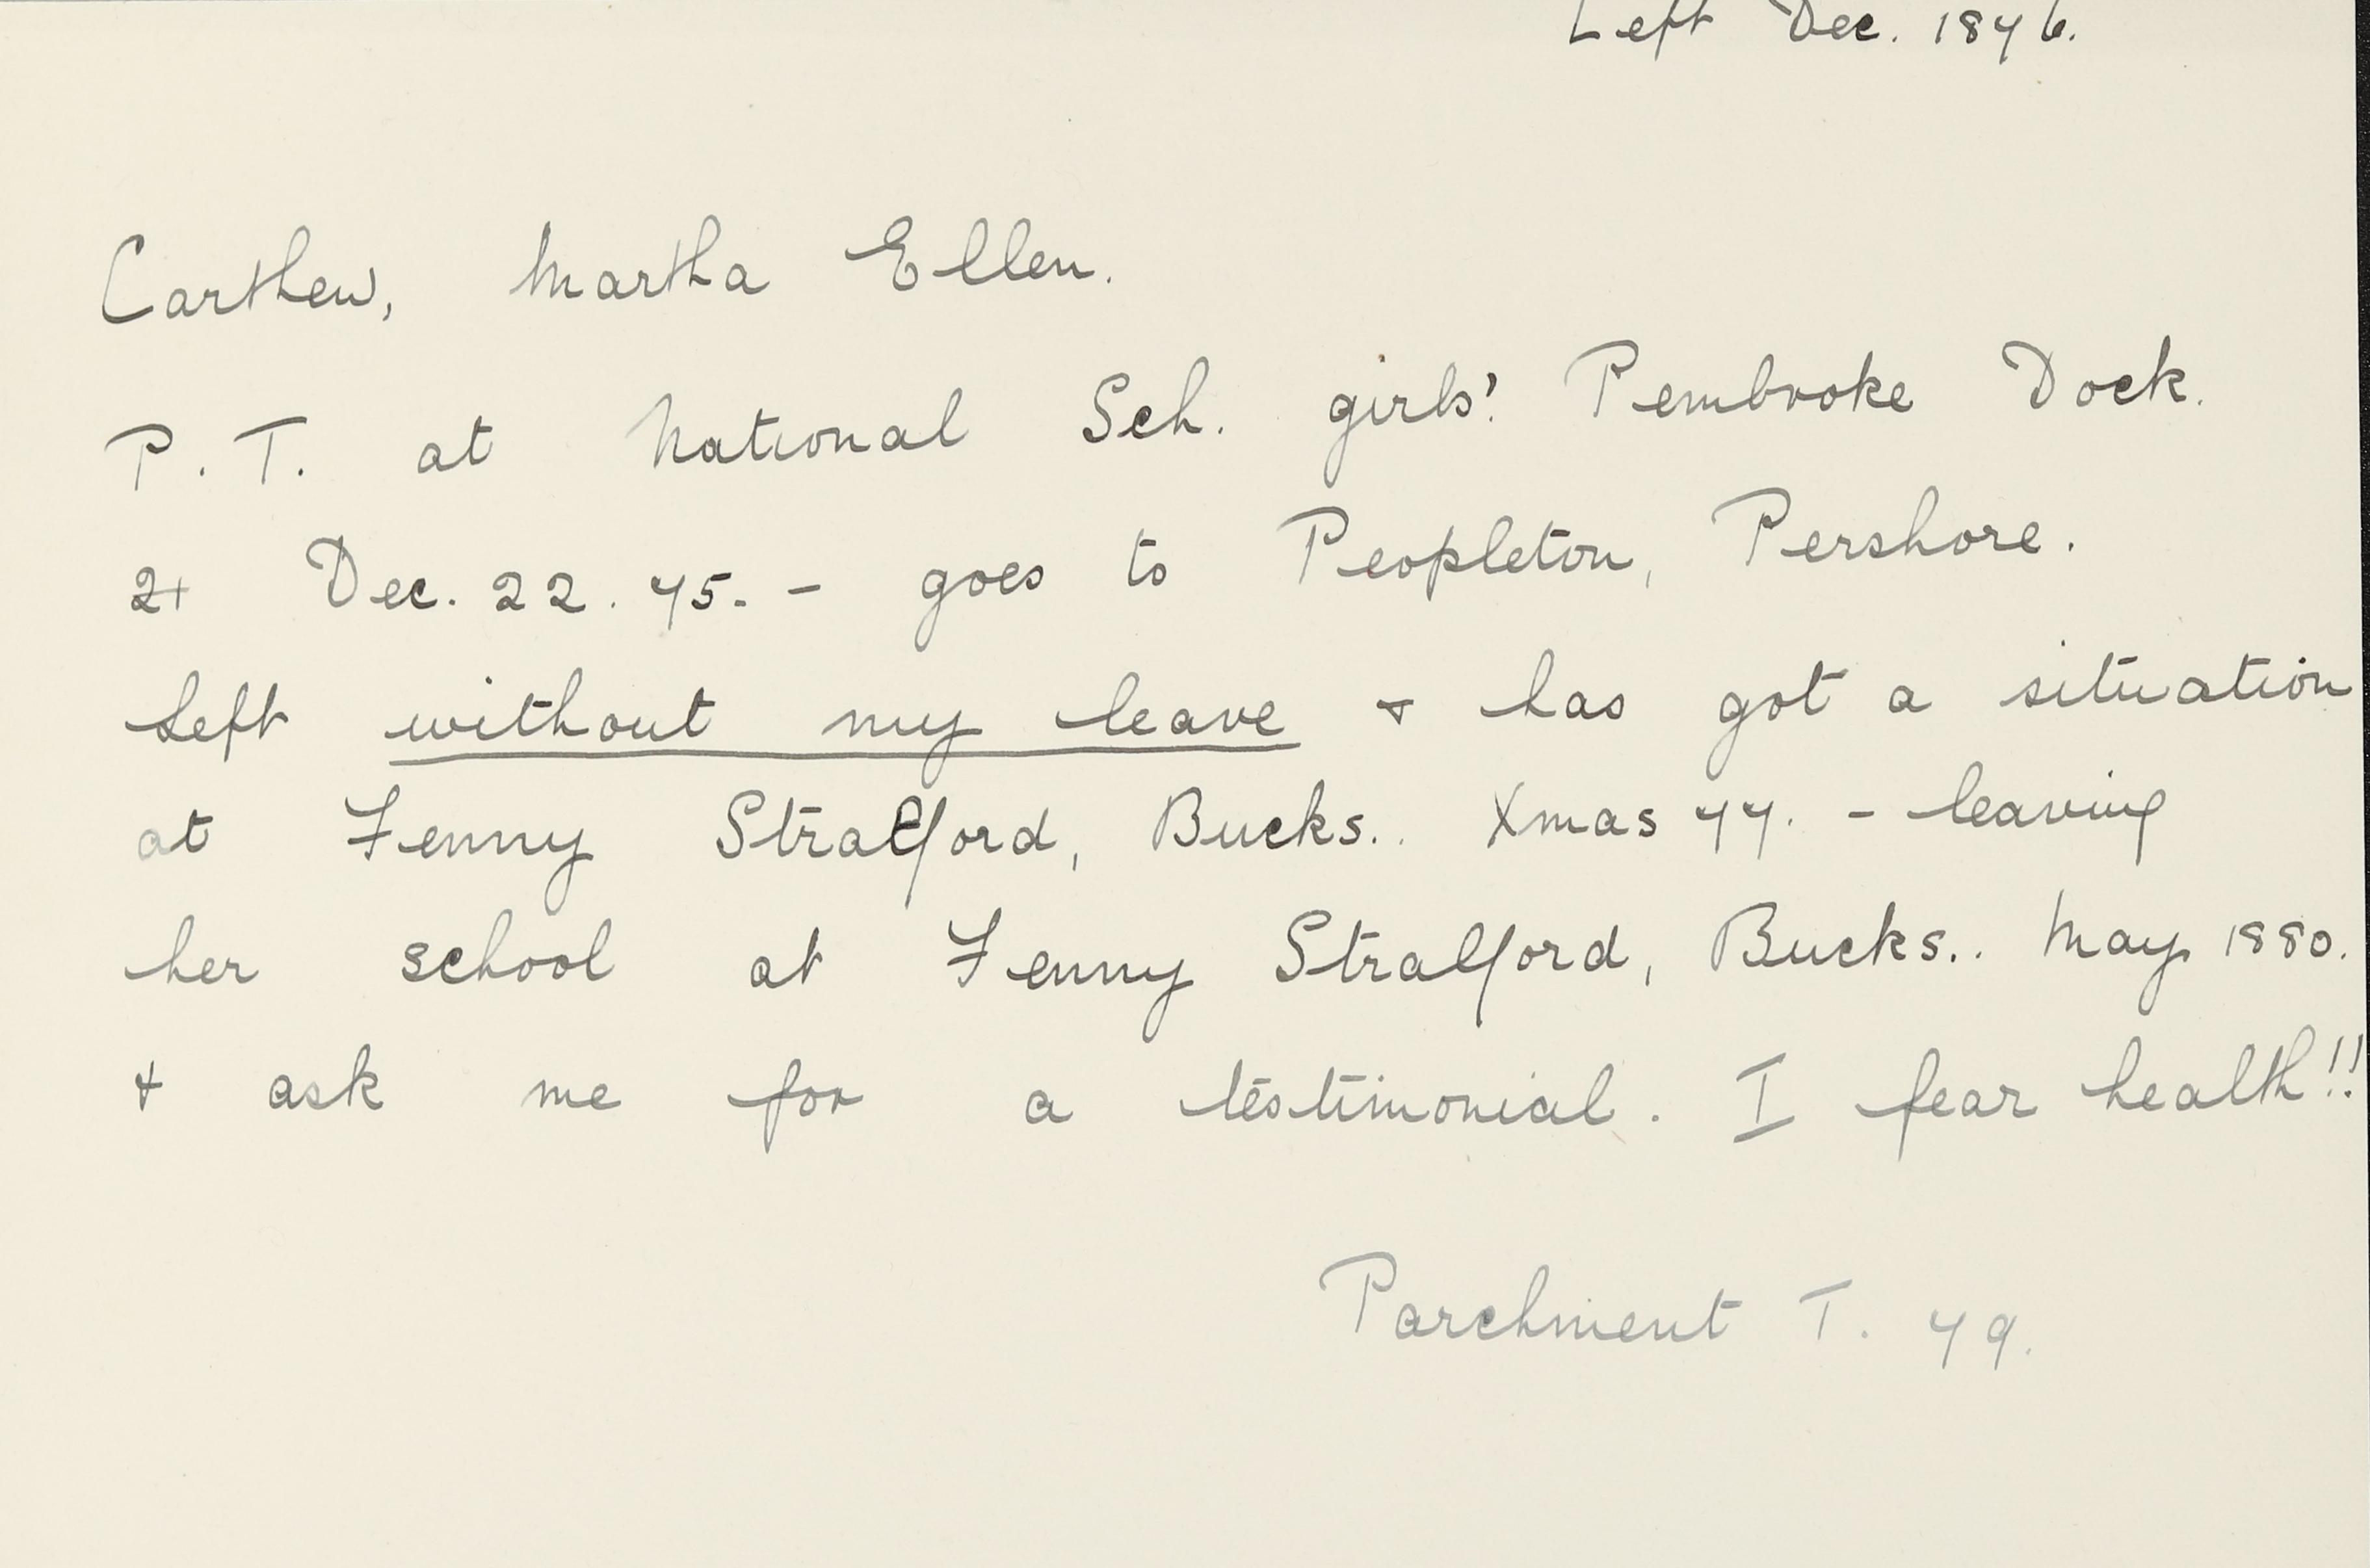 Left Dec. 1876.
Carthew, Martha Ellen.
P. T. at National Sch. girls' Pembroke Dock.
2+ Dec. 22. 75. - goes to Peopleton, Pershore.
Left without my leave & has got a situation
at Fenny Stratford, Bucks.. Xmas 77. - leaving
her school at Fenny Stratford, Bucks.. May 1880.
& ask me for a testimonial. I fear health!!
Parchment T. 79.